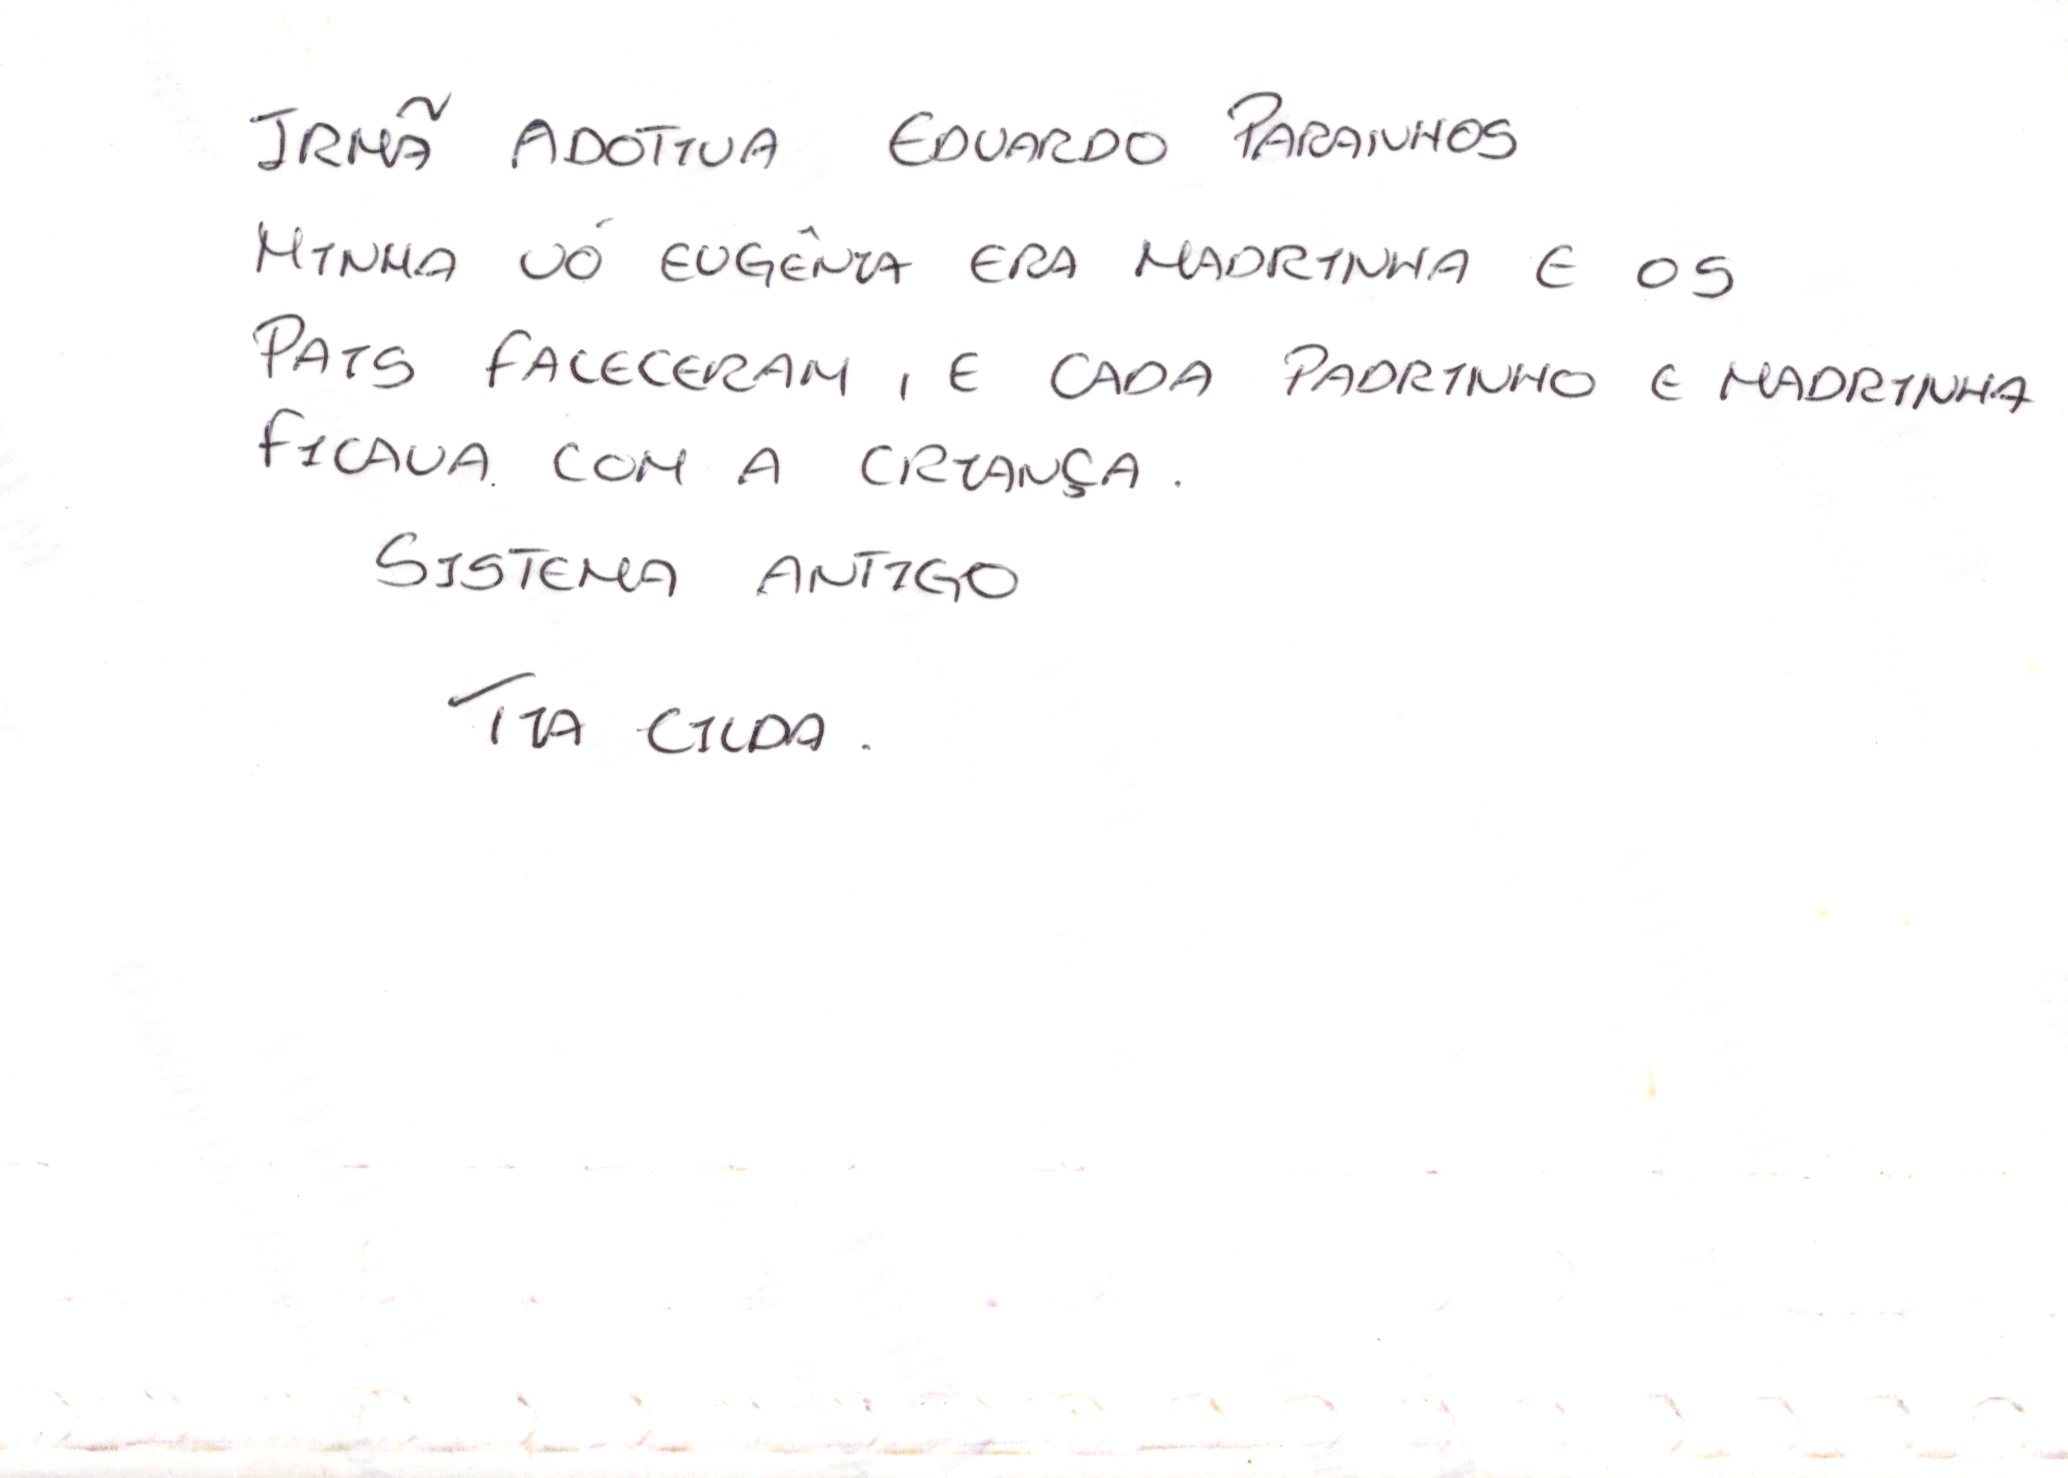 IRMÃ ADOTIVA EDUARDO PARANHOS
MINHA VÓ EUGÊNIA ERA MADRINHA E OS
PAIS FALECERAM, E CADA PADRINHO E MADRINHA
FICAVA COM A CRIANÇA.
SISTEMA ANTIGO
TIA CILDA.